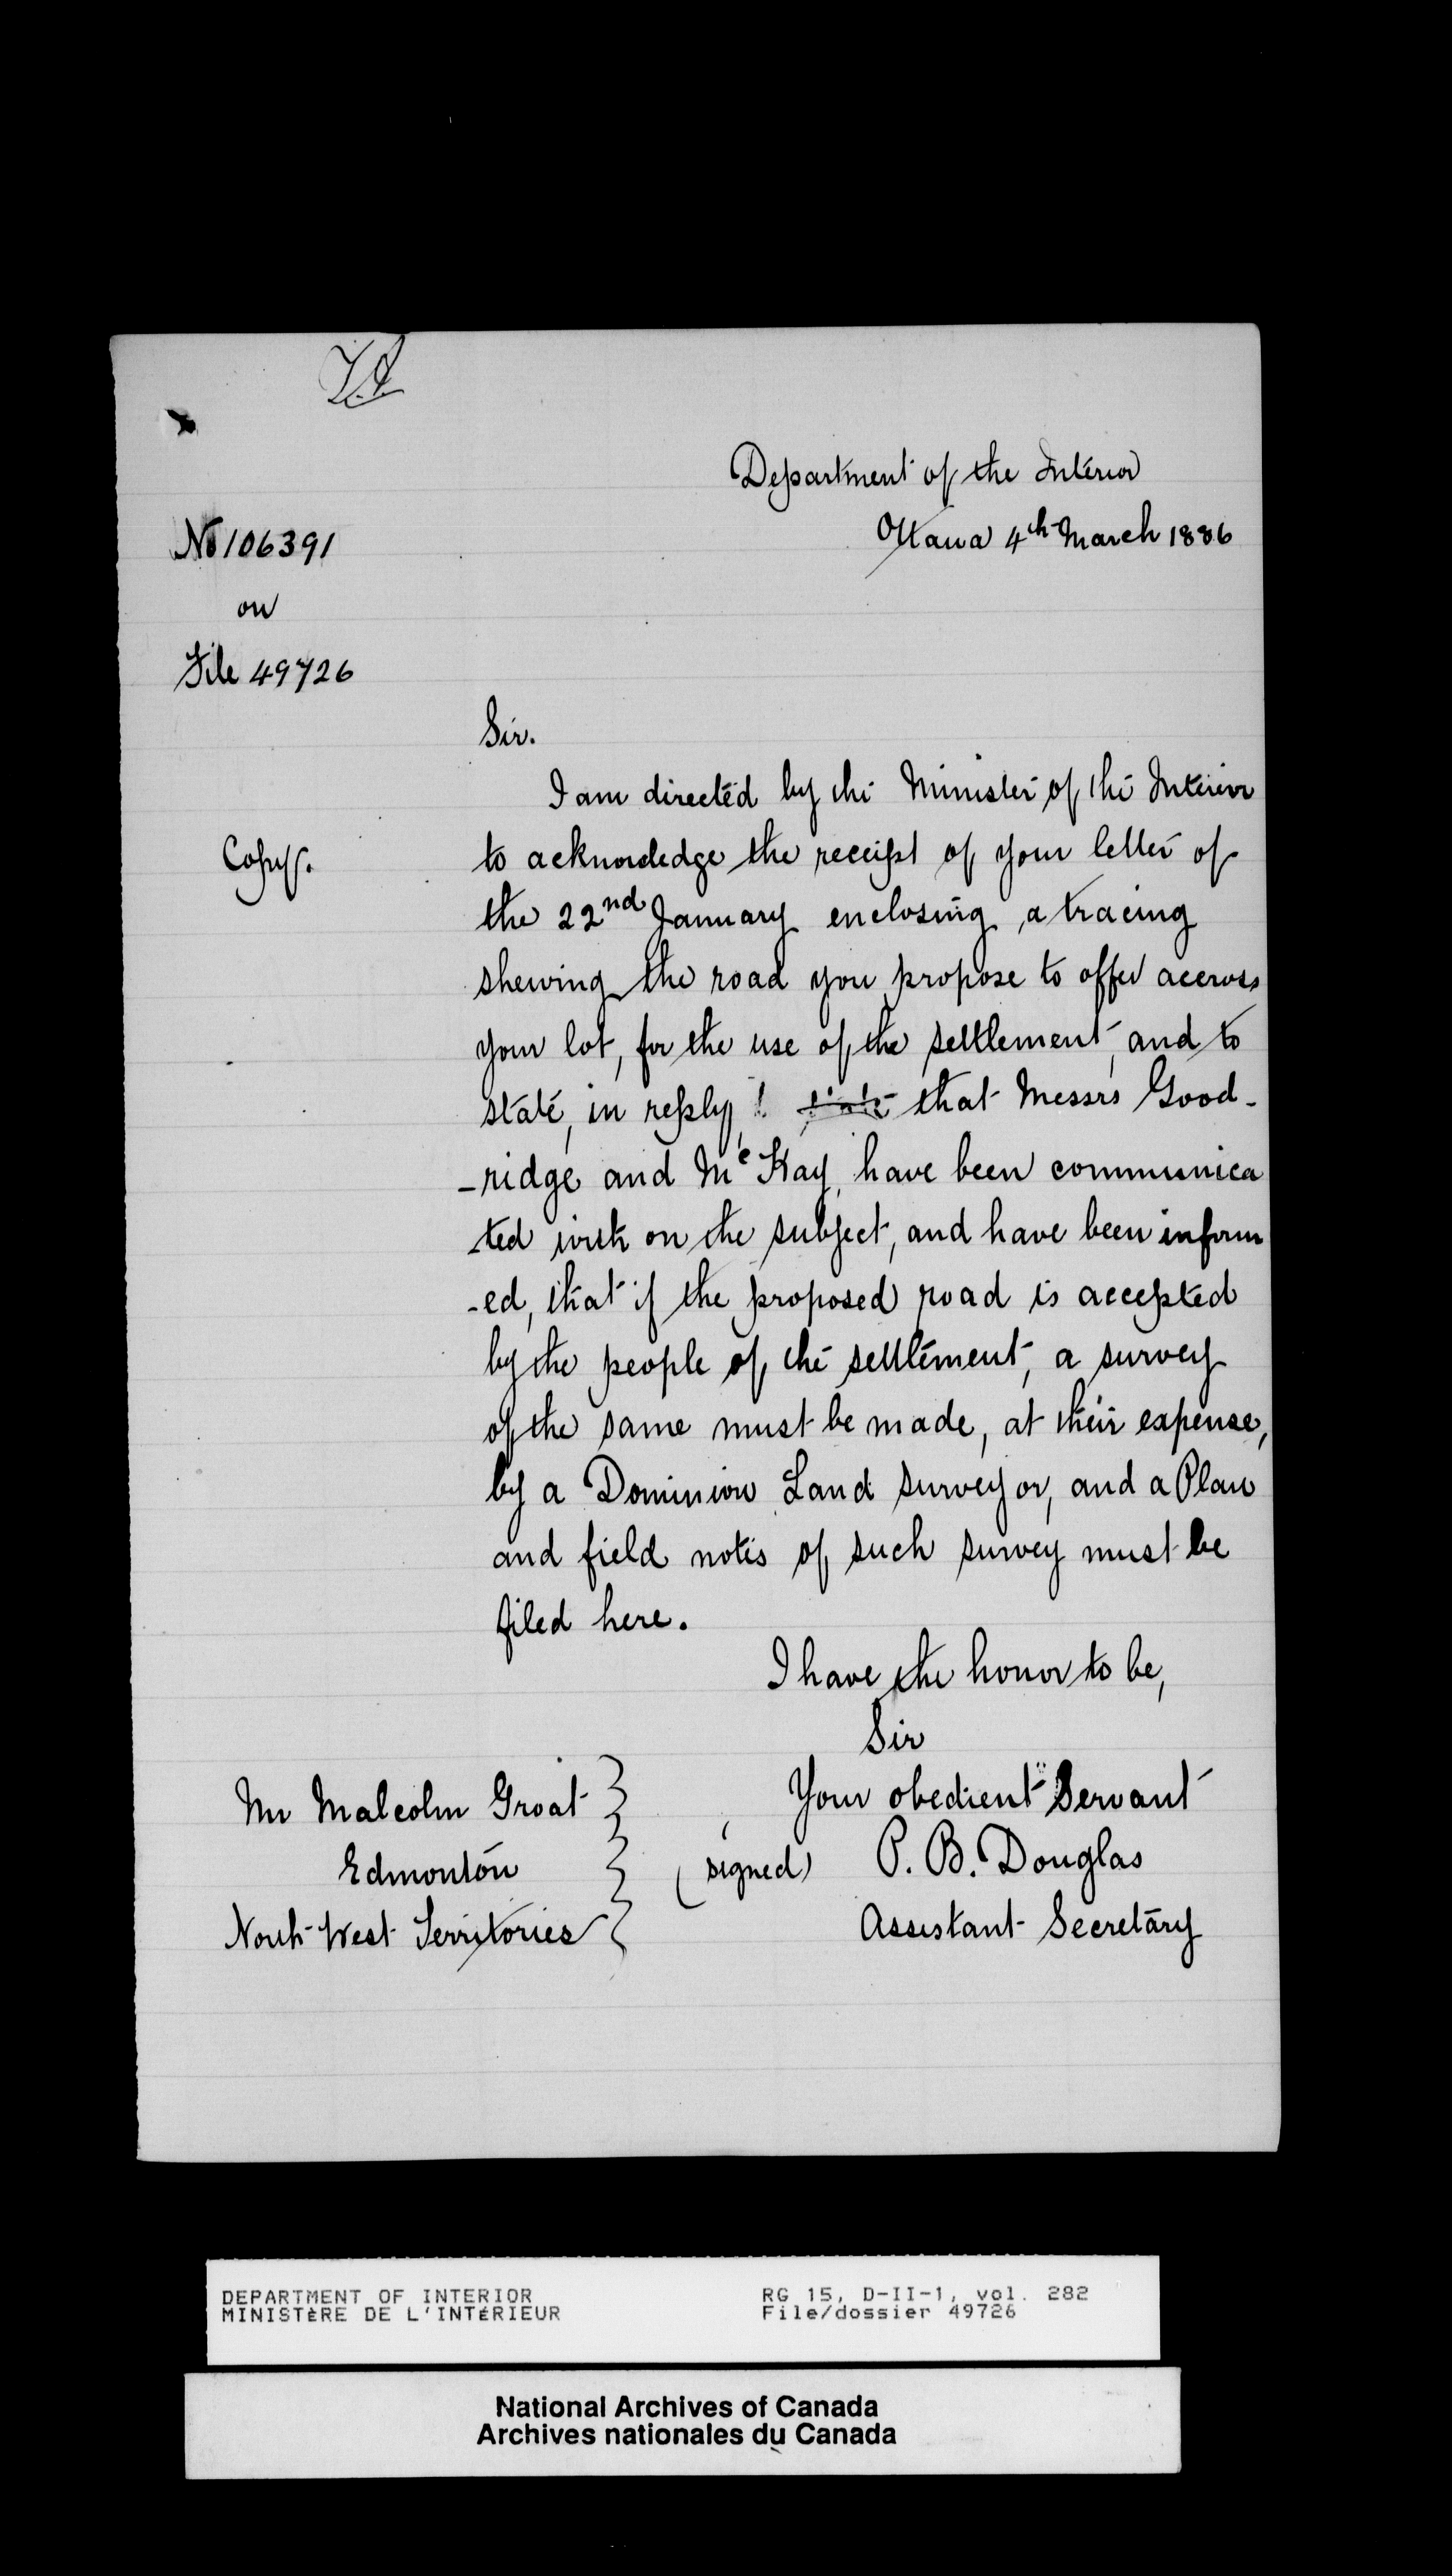 Department of the Interior
Ottawa 4th March 1886
No 106391
on
File 49726
Sir.
I am directed by the Minister of the Interior
Copy.
to acknowledge the receipt of your letter of
the 22nd January enclosing a tracing
shewing the road you propose to offer accross
your lot, for the use of the settlement, and to
state, in reply, that Messrs Good-
-ridge and McKay, have been communica
-ted with on the subject, and have been inform
-ed, that if the proposed road is accepted
by the people of the settlement, a survey
of the same must be made, at their expense,
by a Dominion Land Surveyor, and a Plan
and field notes of such survey must be
filed here.
I have the honor to be,
Sir
Your obedient Servant
(signed) P. B. Douglas
Assistant Secretary
Mr Malcolm Groat
Edmonton
North West Territories
DEPARTMENT OF INTERIOR
MINISTÈRE DE L'INTÉRIEUR
RG 15, D-II-1, vol. 282
File/dossier 49726
National Archives of Canada
Archives nationales du Canada